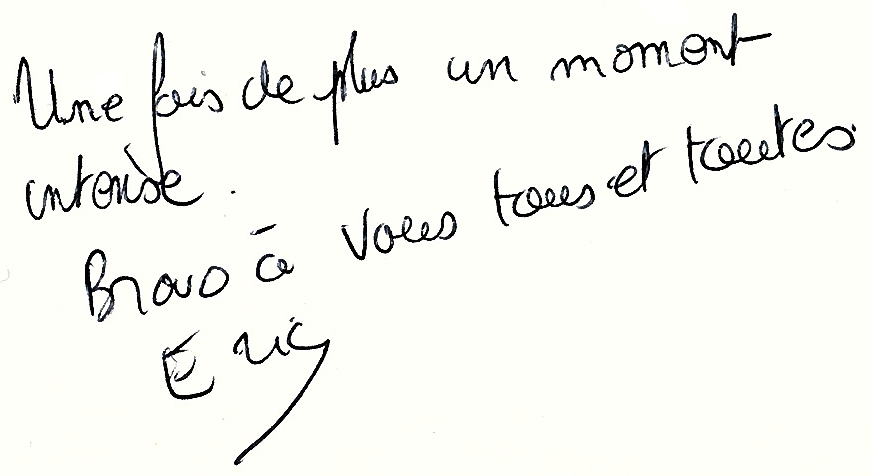 Une fois de plus un moment
intense.
Bravo à vous tous et toutes.
Eric